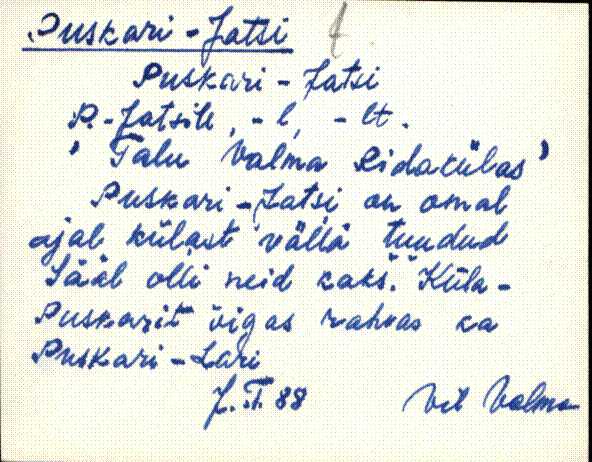 Puskari-Jatsi
Puskari-Jatsi
P.-Jatsile, -l, -lt.
' Talu Valma Ridakülas '
Puskari-Jatsi on omal
ajal külast vällä tuudud
Sääl olli neid kaks. Küla-
Puskarit õigas rahvas ka
Puskari-Lari
J.T. 88 Vil Valma